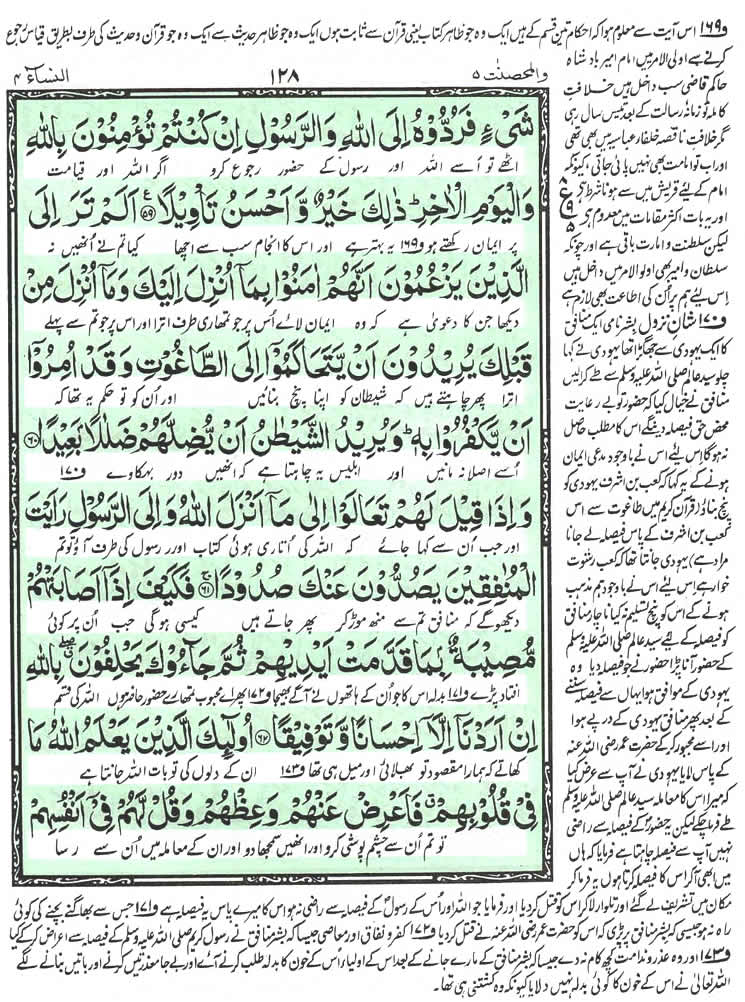 و۱۶۹ اس آیت سے معلوم ہوا کہ احکام تین قسم کے ہیں ایک وہ جو ظاہر کتاب یعنی قرآن سے ثابت ہوں ایک وہ جو ظاہر حدیث سے ایک وہ جو قرآن و حدیث کی طرف بطریق قیاس رجوع
کرنے سے اولی الامر میں امام امیر بادشاہ
حاکم قاضی سب داخل ہیں خلافتِ
کاملہ تو زمانۂ رسالت کے بعد تیس سال رہی
مگر خلافت ناقصہ خلفاء عباسیہ میں بھی تھی
اور اب تو امامت بھی نہیں پائی جاتی کیونکہ
امام کے لئے قریش میں سے ہونا شرط ہے
اور یہ بات اکثر مقامات میں معدوم ہے
لیکن سلطنت و امارت باقی ہے اور چونکہ
سلطان و امیر بھی اولو الامر میں داخل ہیں
اس لئے ہم پر ان کی اطاعت بھی لازم ہے
و۱۷۰ شان نزول بشر نامی ایک منافق
کا ایک یہودی سے جھگڑا تھا یہودی نے کہا
چلو سید عالم صلی اللہ علیہ وسلم سے طے کرا لیں
منافق نے خیال کیا کہ حضور تو بے رعایت
محض حق فیصلہ دینگے اس کا مطلب حاصل
نہ ہوگا اس لئے اس نے باوجود مدعی ایمان
ہونے کے یہ کہا کہ کعب بن اشرف یہودی کو
پنچ بناؤ (قرآن کریم میں طاغوت سے اس
کعب بن اشرف کے پاس فیصلہ لے جانا
مراد ہے) یہودی جانتا تھا کہ کعب رشوت
خوار ہے اس لئے اس نے باوجود ہم مذہب
ہونے کے اس کو پنچ تسلیم نہ کیا ناچار منافق
کو فیصلہ کے لئے سید عالم صلی اللہ علیہ وسلم
کے حضور آنا پڑا حضور نے جو فیصلہ دیا وہ
یہودی کے موافق ہوا یہاں سے فیصلہ سننے
کے بعد پھر منافق یہودی کے درپے ہوا
اور اسے مجبور کر کے حضرت عمر رضی اللہ عنہ
کے پاس لایا یہودی نے آپ سے عرض کیا
کہ میرا اس کا معاملہ سید عالم صلی اللہ علیہ وسلم
طے فرما چکے لیکن یہ حضور کے فیصلہ سے راضی
نہیں آپ سے فیصلہ چاہتا ہے فرمایا کہ ہاں
میں ابھی آکر اس کا فیصلہ کرتا ہوں یہ فرما کر
والمحصنٰت ۵ ۱۲۸ النساء ۴
شَىْءٍ فَرُدُّوْهُ اِلَى اللّٰهِ وَالرَّسُوْلِ اِنْ كُنْتُمْ تُؤْمِنُوْنَ بِاللّٰهِ
اٹھے تو اسے اللہ اور رسول کے حضور رجوع کرو اگر اللہ اور قیامت
وَالْيَوْمِ الْاٰخِرِ ذٰلِكَ خَيْرٌ وَّاَحْسَنُ تَاْوِيْلًا ۵۹ اَلَمْ تَرَ اِلَى
پر ایمان رکھتے ہو و۱۶۹ یہ بہتر ہے اور اس کا انجام سب سے اچھا کیا تم نے انھیں نہ
الَّذِيْنَ يَزْعُمُوْنَ اَنَّهُمْ اٰمَنُوْا بِمَآ اُنْزِلَ اِلَيْكَ وَمَآ اُنْزِلَ مِنْ
دیکھا جن کا دعویٰ ہے کہ وہ ایمان لائے اس پر جو تمھاری طرف اترا اور اس پر جو تم سے پہلے
قَبْلِكَ يُرِيْدُوْنَ اَنْ يَّتَحَاكَمُوْٓا اِلَى الطَّاغُوْتِ وَقَدْ اُمِرُوْٓا
اترا پھر چاہتے ہیں کہ شیطان کو اپنا پنچ بنائیں اور ان کو تو حکم یہ تھا کہ
اَنْ يَّكْفُرُوْا بِهٖ وَيُرِيْدُ الشَّيْطٰنُ اَنْ يُّضِلَّهُمْ ضَلٰلًۢا بَعِيْدًا ۶۰
اسے اصلا نہ مانیں اور ابلیس یہ چاہتا ہے کہ انھیں دور بہکاوے و۱۷۰
وَاِذَا قِيْلَ لَهُمْ تَعَالَوْا اِلٰى مَآ اَنْزَلَ اللّٰهُ وَاِلَى الرَّسُوْلِ رَاَيْتَ
اور جب ان سے کہا جائے کہ اللہ کی اتاری ہوئی کتاب اور رسول کی طرف آؤ تو تم
الْمُنٰفِقِيْنَ يَصُدُّوْنَ عَنْكَ صُدُوْدًا ۶۱ فَكَيْفَ اِذَآ اَصَابَتْهُمْ
دیکھو گے کہ منافق تم سے منھ موڑ کر پھر جاتے ہیں کیسی ہوگی جب ان پر کوئی
مُّصِيْبَةٌۢ بِمَا قَدَّمَتْ اَيْدِيْهِمْ ثُمَّ جَآءُوْكَ يَحْلِفُوْنَ بِاللّٰهِ
افتاد پڑے و۱۷۱ بدلہ اس کا جو ان کے ہاتھوں نے آگے بھیجا و۱۷۲ پھر اے محبوب تمھارے حضور حاضر ہوں اللہ کی قسم
اِنْ اَرَدْنَآ اِلَّآ اِحْسَانًا وَّتَوْفِيْقًا ۶۲ اُولٰٓئِكَ الَّذِيْنَ يَعْلَمُ اللّٰهُ مَا
کھاتے کہ ہمارا مقصود تو بھلائی اور میل ہی تھا و۱۷۳ ان کے دلوں کی تو بات اللہ جانتا ہے
فِىْ قُلُوْبِهِمْ فَاَعْرِضْ عَنْهُمْ وَعِظْهُمْ وَقُلْ لَّهُمْ فِىْٓ اَنْفُسِهِمْ
تو تم ان سے چشم پوشی کرو اور انھیں سمجھا دو اور ان کے معاملہ میں ان سے رسا
مکان میں تشریف لے گئے اور تلوار لا کر اس کو قتل کر دیا اور فرمایا جو اللہ اور اس کے رسول کے فیصلہ سے راضی نہ ہو اس کا میرے پاس یہ فیصلہ ہے و۱۷۱ جس سے بھاگنے بچنے کی کوئی
راہ نہ ہو جیسی کہ بشر منافق پر پڑی کہ اس کو حضرت عمر رضی اللہ عنہ نے قتل کر دیا و۱۷۲ کفر و نفاق اور معاصی جیسا کہ بشر منافق نے رسول کریم صلی اللہ علیہ وسلم کے فیصلہ سے اعراض کر کے کیا
و۱۷۳ اور وہ عذر و ندامت کچھ کام نہ دے جیسا کہ بشر منافق کے مارے جانے کے بعد اس کے اولیاء اس کے خون کا بدلہ طلب کرنے آئے اور بے جا معذرتیں کرنے اور باتیں بنانے لگے
اللہ تعالیٰ نے اس کے خون کا کوئی بدلہ نہیں دلایا کیونکہ وہ کشتنی ہی تھا۔